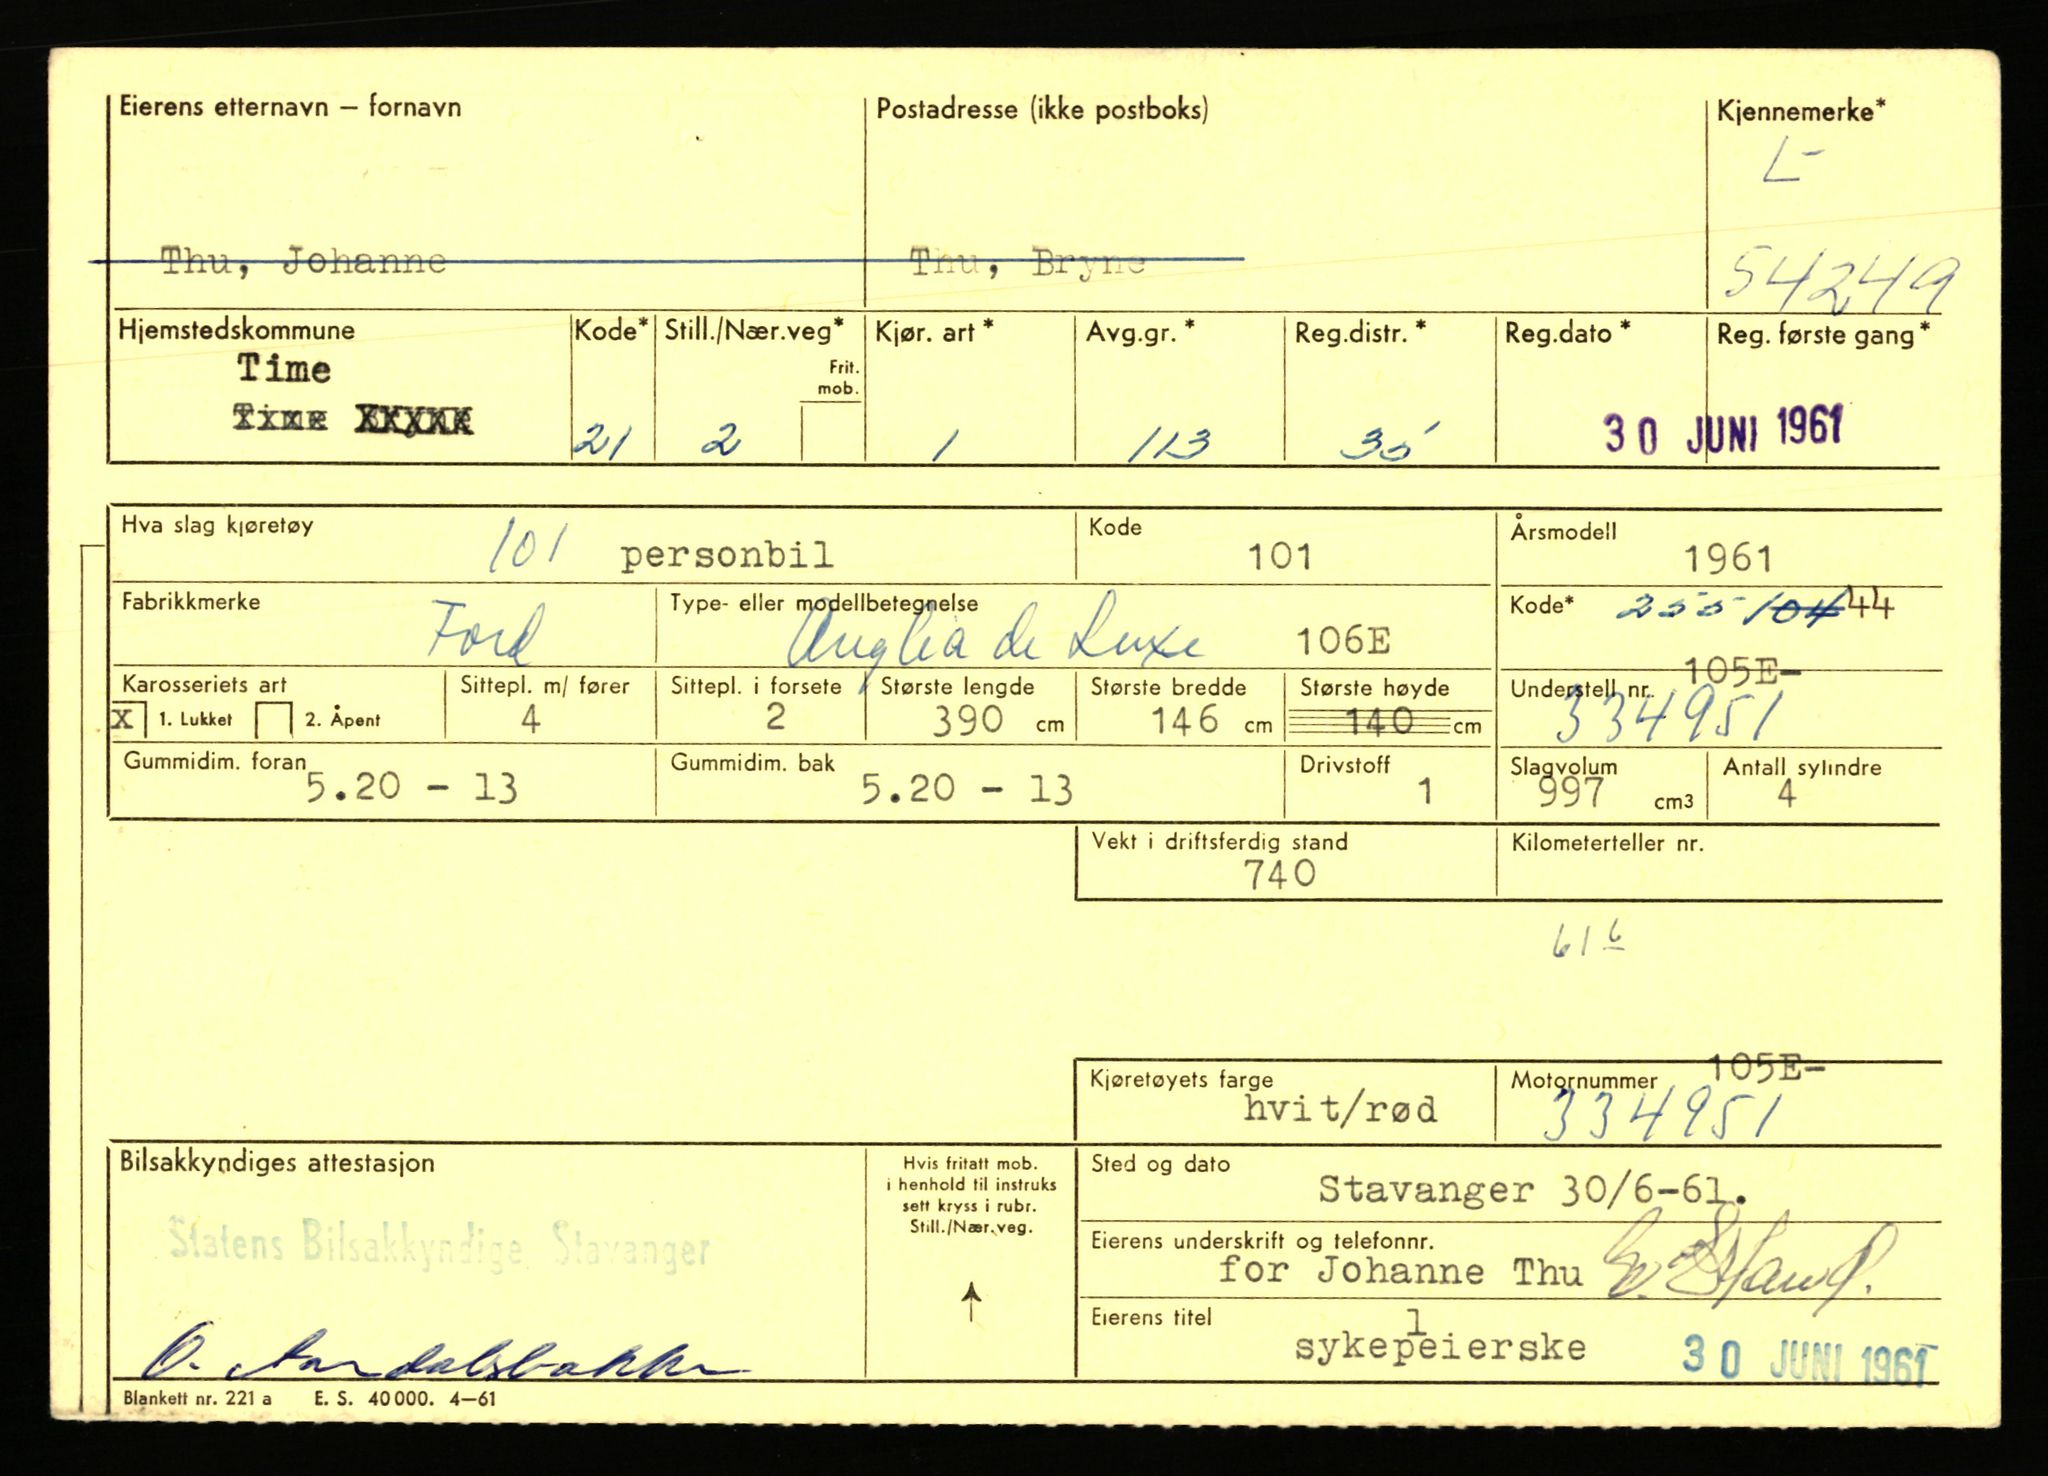 Eierens etternavn – fornavn
Postadresse (ikke postboks)
Kjennemerke*
L-
54249
Thu, Johanne
Thu, Bryne
Hjemstedskommune
Kode*
Still./Nær.veg*
Frit. mob.
Kjør. art*
Avg.gr.*
Reg.distr.*
Reg.dato*
Reg. første gang*
Time
Time
21
2
1
113
35
30 JUNI 1961
Hva slag kjøretøy
101 personbil
Kode
101
Årsmodell
1961
Fabrikkmerke
Ford
Type- eller modellbetegnelse
Anglia de Luxe 106E
Kode* 255 104 44
Karosseriets art
X 1. Lukket
2. Åpent
Sittepl. m/ fører
4
Sittepl. i forsete
2
Største lengde
390 cm
Største bredde
146 cm
Største høyde
140 cm
105E-
Understell nr.
334951
Gummidim. foran
5.20 - 13
Gummidim. bak
5.20 - 13
Drivstoff
1
Slagvolum
997 cm3
Antall sylindre
4
Vekt i driftsferdig stand
740
Kilometerteller nr.
61 6
Kjøretøyets farge
hvit/rød
105E-
Motornummer
334951
Bilsakkyndiges attestasjon
Statens Bilsakkyndige, Stavanger
Hvis fritatt mob.
i henhold til instruks
sett kryss i rubr.
Still./Nær.veg.
Sted og dato
Stavanger 30/6-61.
Eierens underskrift og telefonnr.
for Johanne Thu
Eierens titel
l
sykepeierske
30 JUNI 1961
Blankett nr. 221 a E. S. 40 000. 4—61